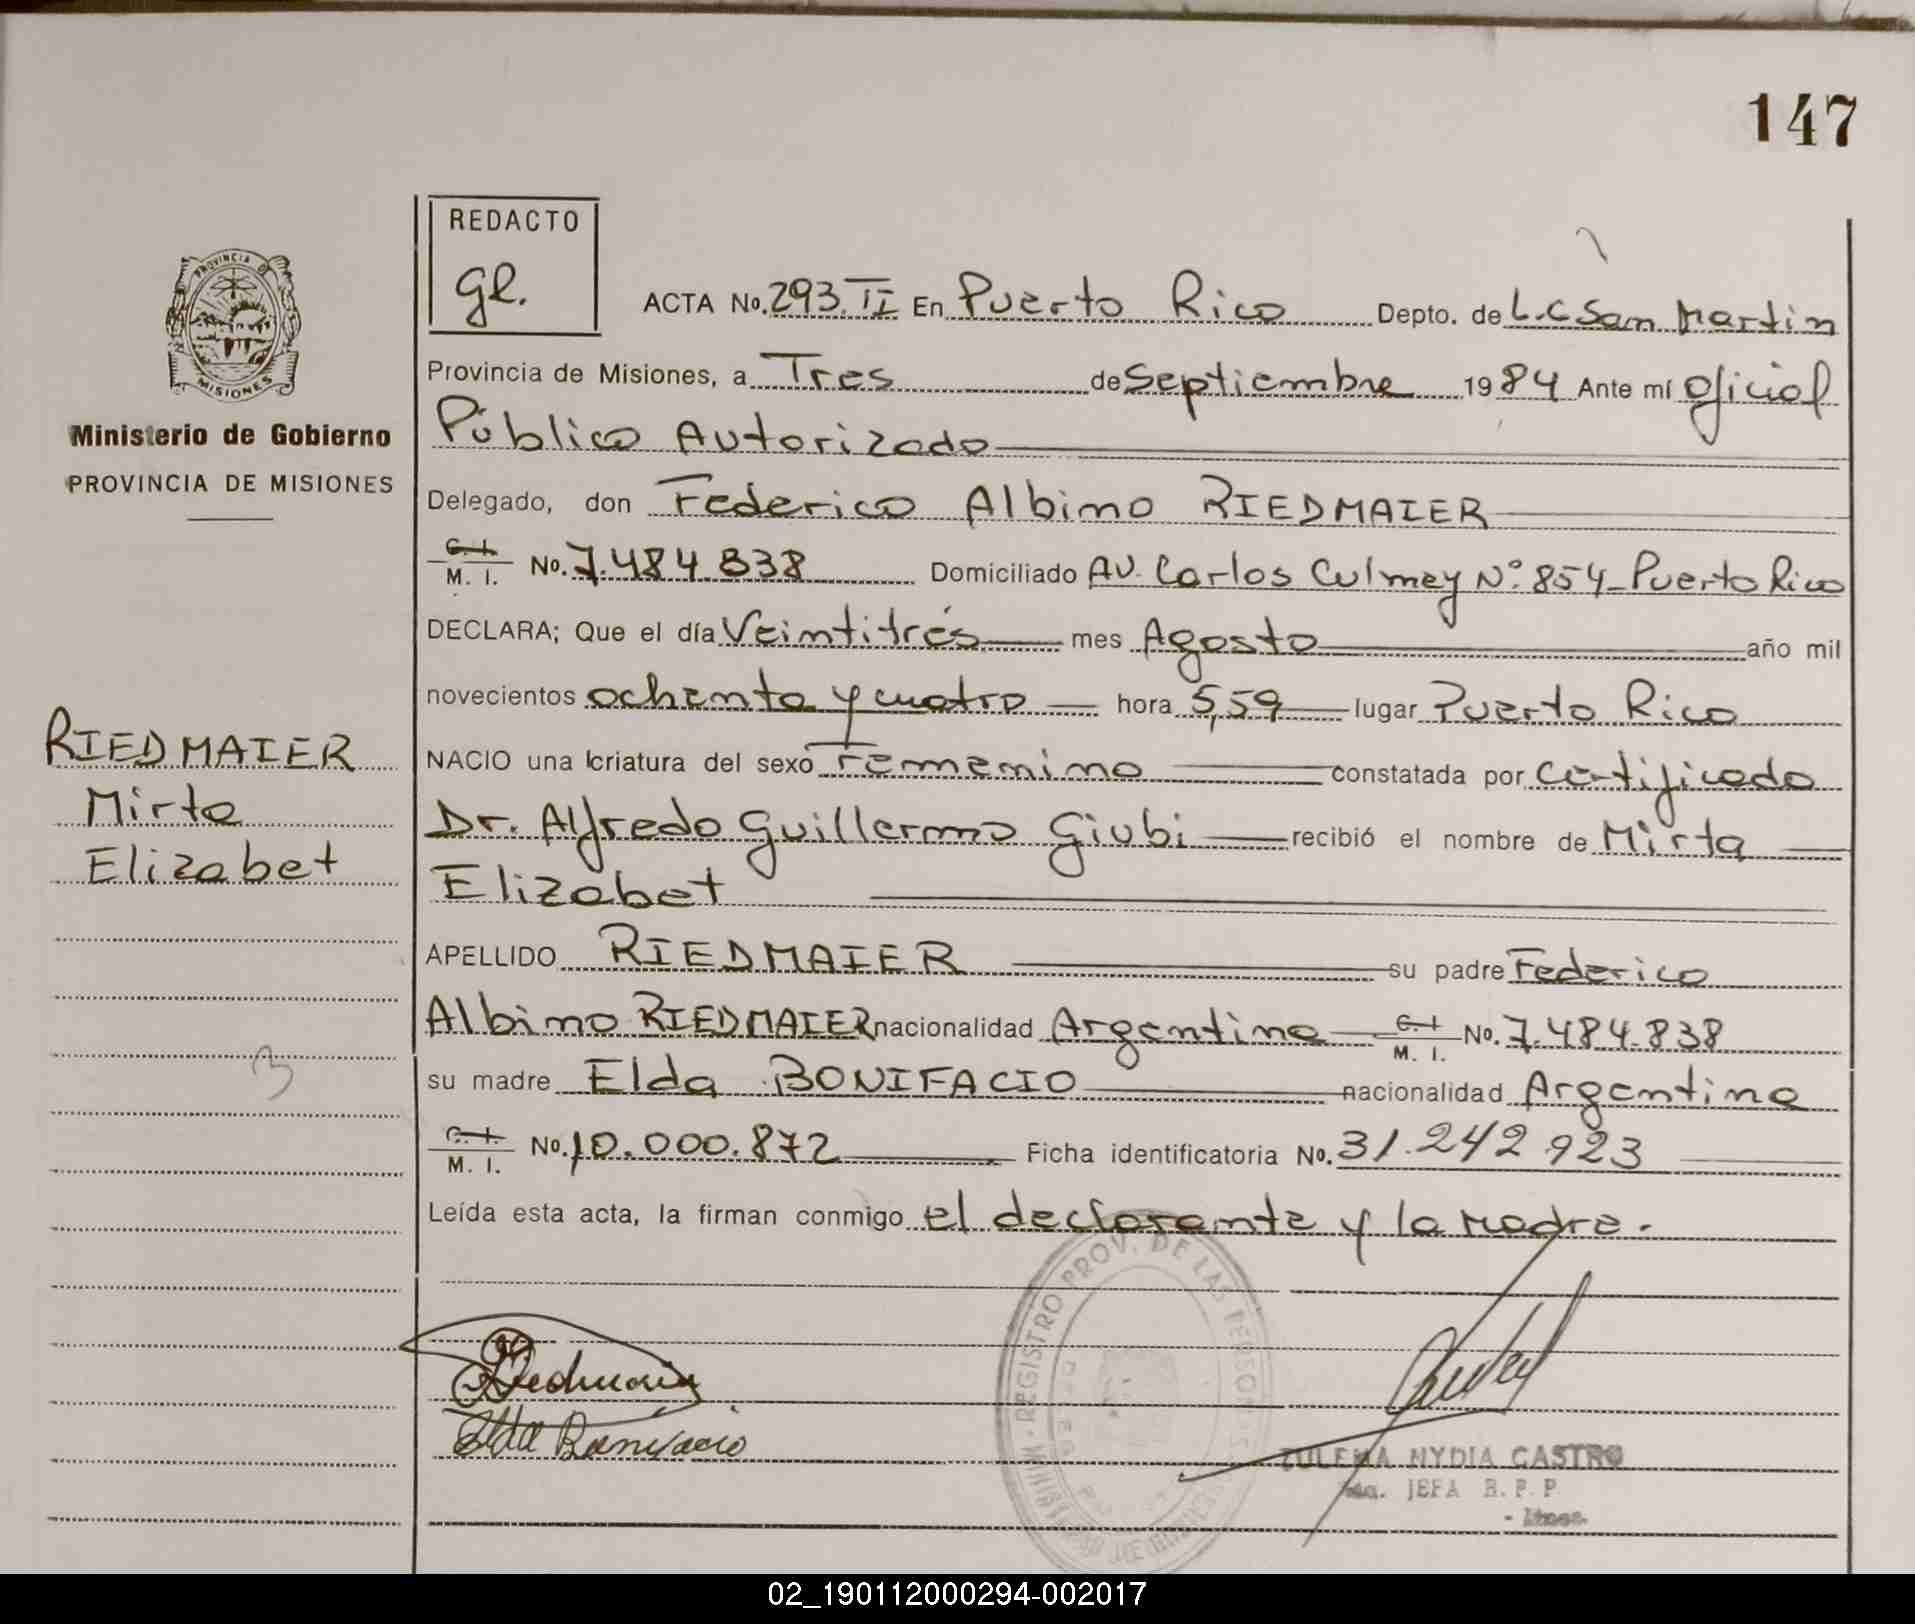 147
REDACTO
gl.
PROVINCIA DE
MISIONES
Ministerio de Gobierno
PROVINCIA DE MISIONES
ACTA No. 293. II En Puerto Rico Depto. de L.G San Martin
Provincia de Misiones, a Tres de Septiembre 1984 Ante mí Oficial
Público Autorizado
Delegado, don Federico Albino RIEDMAIER
C. I.
M. I. No. 7.484.838 Domiciliado AV. Carlos Culmey Nº 854_ Puerto Rico
DECLARA; Que el día Veintitrés mes Agosto año mil
novecientos ochenta y cuatro hora 5,59 lugar Puerto Rico
NACIO una criatura del sexo Femenino constatada por Certificado
Dr. Alfredo Guillermo Giubi recibió el nombre de Mirta
Elizabet
APELLIDO RIEDMAIER su padre Federico
Albino RIEDMAIER nacionalidad Argentina C. I. M. I. No. 7.484.838
su madre Elda BONIFACIO nacionalidad Argentina
C. I.
M. I. No. 10.000.872 Ficha identificatoria No. 31.242.923
Leída esta acta, la firman conmigo el declarante y la Madre.
RIEDMAIER
Mirta
Elizabet
Elda Bonifacio
REGISTRO PROV. DE LAS PERSONAS
ZULEMA NYDIA CASTRO
JEFA R. P. P
02_190112000294-002017